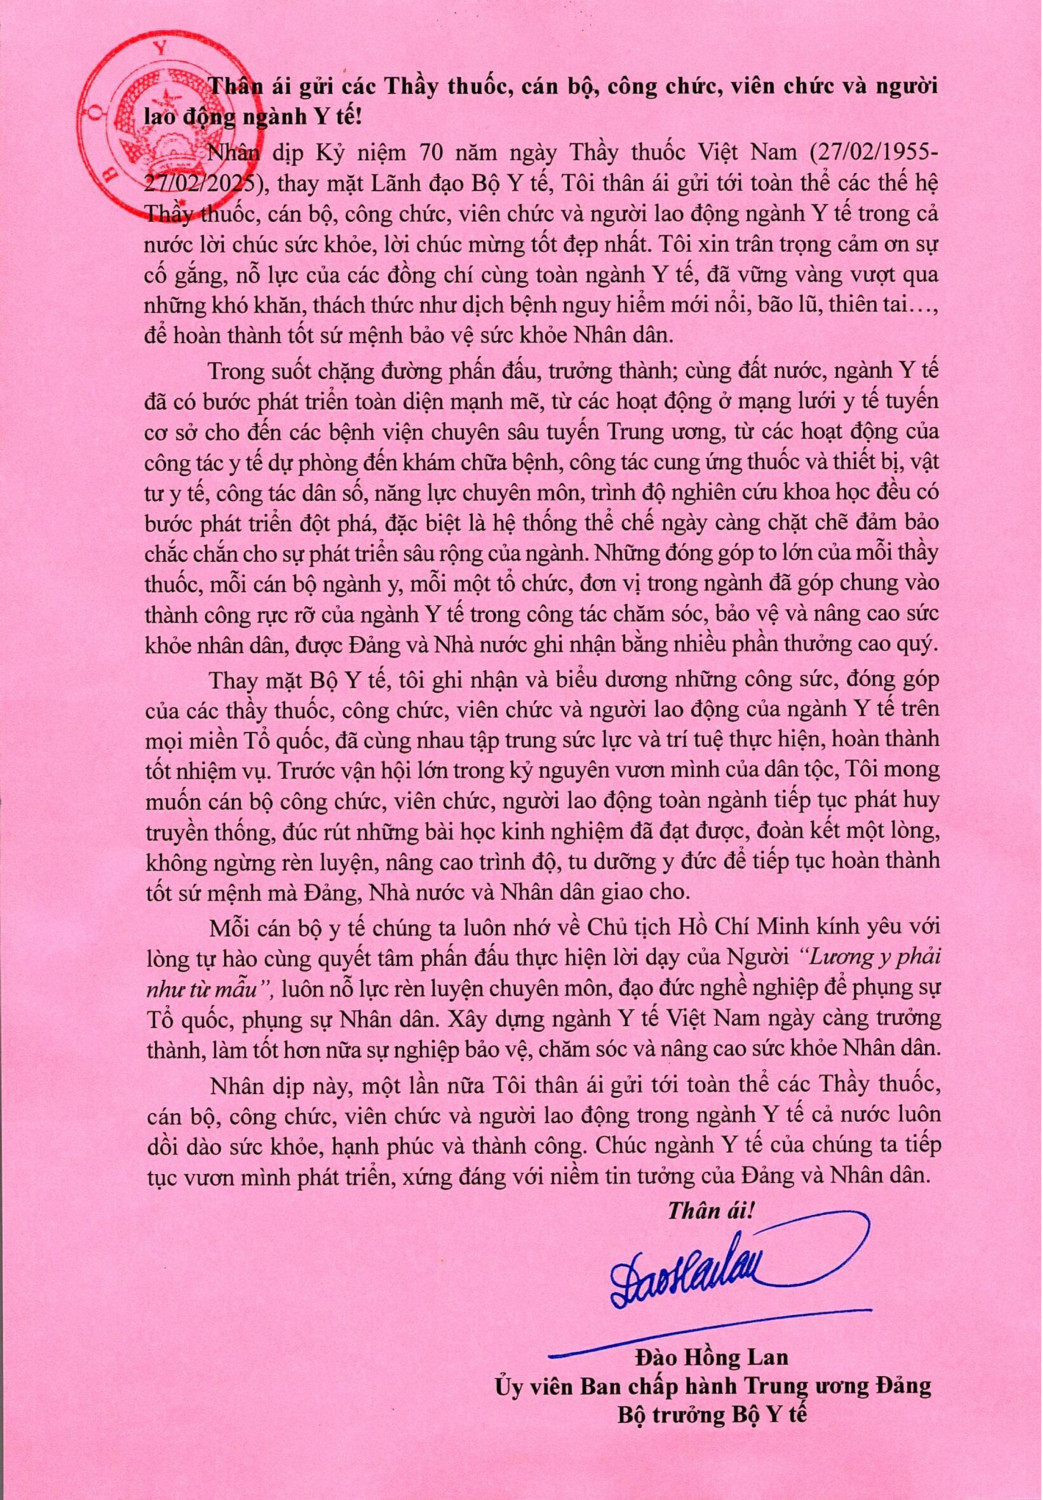 BỘ Y
Thân ái gửi các Thầy thuốc, cán bộ, công chức, viên chức và người
lao động ngành Y tế!
Nhân dịp Kỷ niệm 70 năm ngày Thầy thuốc Việt Nam (27/02/1955-
27/02/2025), thay mặt Lãnh đạo Bộ Y tế, Tôi thân ái gửi tới toàn thể các thế hệ
Thầy thuốc, cán bộ, công chức, viên chức và người lao động ngành Y tế trong cả
nước lời chúc sức khỏe, lời chúc mừng tốt đẹp nhất. Tôi xin trân trọng cảm ơn sự
cố gắng, nỗ lực của các đồng chí cùng toàn ngành Y tế, đã vững vàng vượt qua
những khó khăn, thách thức như dịch bệnh nguy hiểm mới nổi, bão lũ, thiên tai…,
để hoàn thành tốt sứ mệnh bảo vệ sức khỏe Nhân dân.
Trong suốt chặng đường phấn đấu, trưởng thành; cùng đất nước, ngành Y tế
đã có bước phát triển toàn diện mạnh mẽ, từ các hoạt động ở mạng lưới y tế tuyến
cơ sở cho đến các bệnh viện chuyên sâu tuyến Trung ương, từ các hoạt động của
công tác y tế dự phòng đến khám chữa bệnh, công tác cung ứng thuốc và thiết bị, vật
tư y tế, công tác dân số, năng lực chuyên môn, trình độ nghiên cứu khoa học đều có
bước phát triển đột phá, đặc biệt là hệ thống thể chế ngày càng chặt chẽ đảm bảo
chắc chắn cho sự phát triển sâu rộng của ngành. Những đóng góp to lớn của mỗi thầy
thuốc, mỗi cán bộ ngành y, mỗi một tổ chức, đơn vị trong ngành đã góp chung vào
thành công rực rỡ của ngành Y tế trong công tác chăm sóc, bảo vệ và nâng cao sức
khỏe nhân dân, được Đảng và Nhà nước ghi nhận bằng nhiều phần thưởng cao quý.
Thay mặt Bộ Y tế, tôi ghi nhận và biểu dương những công sức, đóng góp
của các thầy thuốc, công chức, viên chức và người lao động của ngành Y tế trên
mọi miền Tổ quốc, đã cùng nhau tập trung sức lực và trí tuệ thực hiện, hoàn thành
tốt nhiệm vụ. Trước vận hội lớn trong kỷ nguyên vươn mình của dân tộc, Tôi mong
muốn cán bộ công chức, viên chức, người lao động toàn ngành tiếp tục phát huy
truyền thống, đúc rút những bài học kinh nghiệm đã đạt được, đoàn kết một lòng,
không ngừng rèn luyện, nâng cao trình độ, tu dưỡng y đức để tiếp tục hoàn thành
tốt sứ mệnh mà Đảng, Nhà nước và Nhân dân giao cho.
Mỗi cán bộ y tế chúng ta luôn nhớ về Chủ tịch Hồ Chí Minh kính yêu với
lòng tự hào cùng quyết tâm phấn đấu thực hiện lời dạy của Người “Lương y phải
như từ mẫu”, luôn nỗ lực rèn luyện chuyên môn, đạo đức nghề nghiệp để phụng sự
Tổ quốc, phụng sự Nhân dân. Xây dựng ngành Y tế Việt Nam ngày càng trưởng
thành, làm tốt hơn nữa sự nghiệp bảo vệ, chăm sóc và nâng cao sức khỏe Nhân dân.
Nhân dịp này, một lần nữa Tôi thân ái gửi tới toàn thể các Thầy thuốc,
cán bộ, công chức, viên chức và người lao động trong ngành Y tế cả nước luôn
dồi dào sức khỏe, hạnh phúc và thành công. Chúc ngành Y tế của chúng ta tiếp
tục vươn mình phát triển, xứng đáng với niềm tin tưởng của Đảng và Nhân dân.
Thân ái!
DaoHonLan
Đào Hồng Lan
Ủy viên Ban chấp hành Trung ương Đảng
Bộ trưởng Bộ Y tế